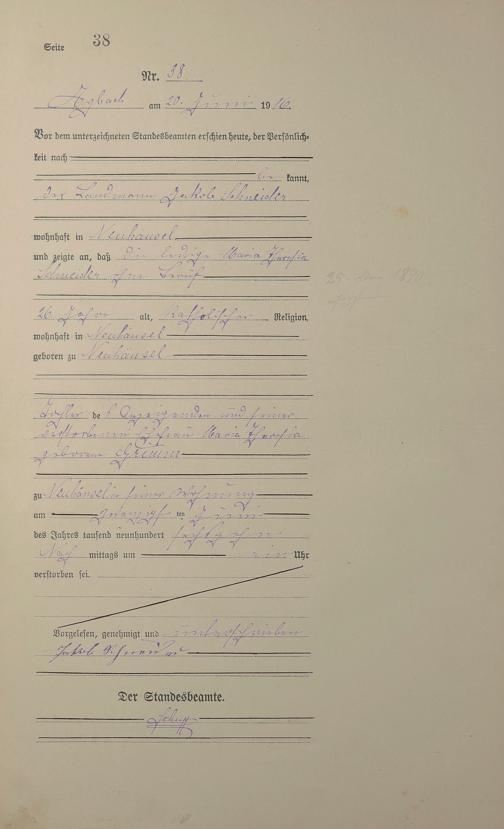 Seite 38
Nr. 38.
Arzbach am 20. Juni 1916.
Vor dem unterzeichneten Standesbeamten erschien heute, der Persönlich-
keit nach
be kannt,
der Landmann Jakob Schneider
wohnhaft in Neuhäusel
und zeigte an, daß die ledige Maria Theresia
Schneider ohne Beruf
26 Jahre alt, katholischer Religion,
wohnhaft in Neuhäusel
geboren zu Neuhäusel
Tochter des Anzeigenden und seiner
verstorbenen Ehefrau Maria Theresia
geborene Grimm
zu Neuhäusel in seiner Wohnung
am ten Juni
des Jahrs tausend neunhundert sechzehn
Nach mittags um ein Uhr
verstorben sei.
Vorgelesen, genehmigt und unterschrieben
Jakob Schneider
Der Standesbeamte.